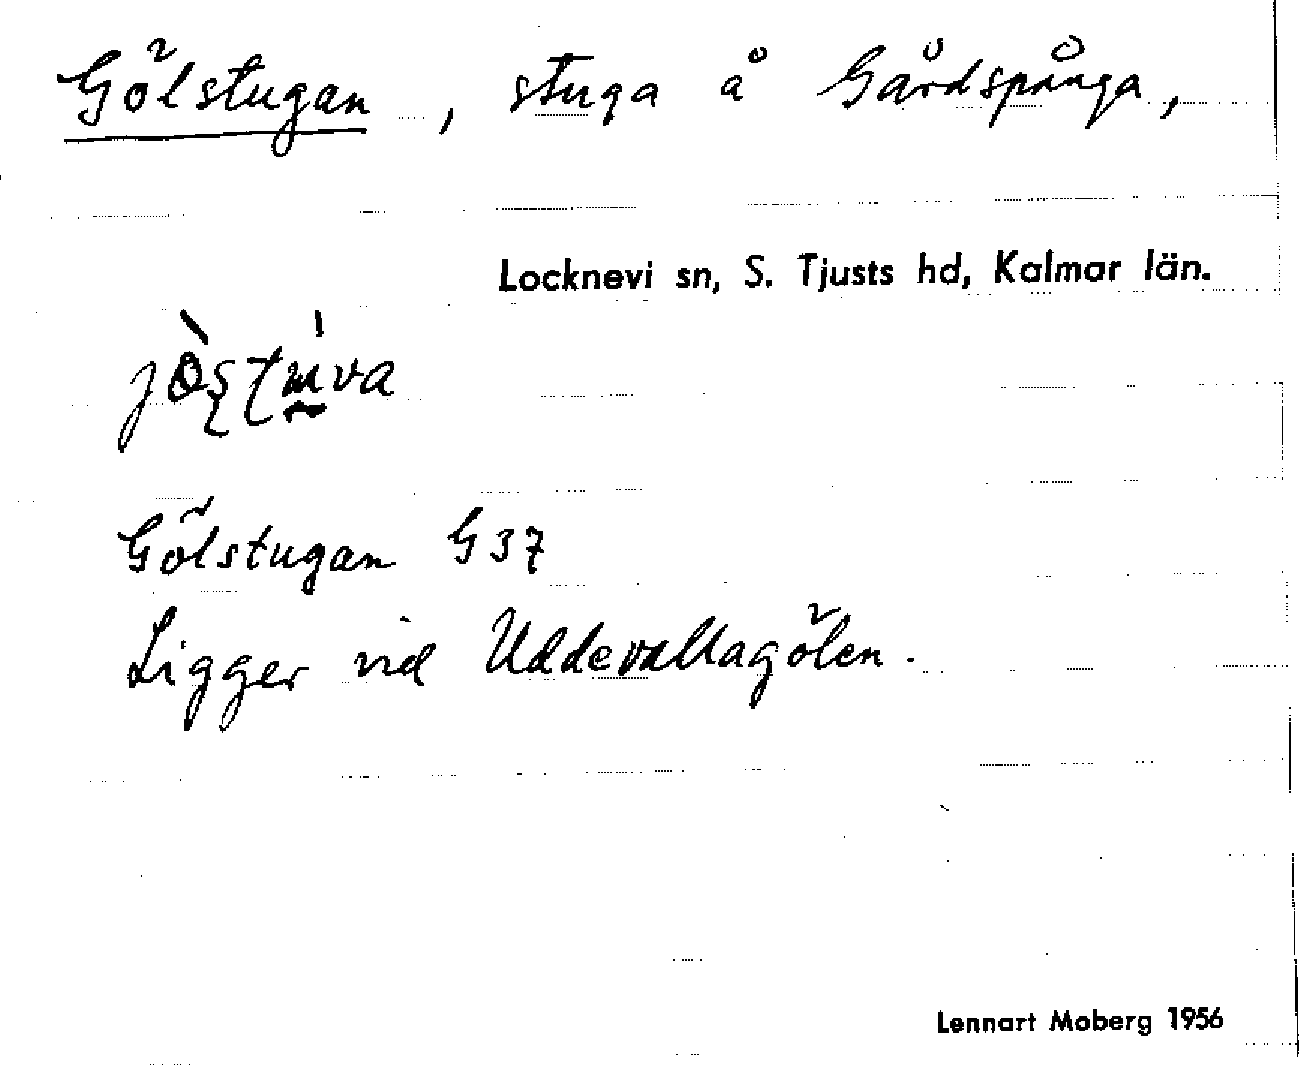 Gölstugan, stuga å Gårdspånga,
Locknevi sn, S. Tjusts hd, Kalmar län.
Gölstugan G37
Ligger vid Uddevallagölen.
Lennart Moberg 1956